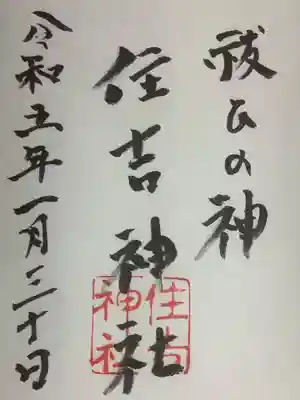 祓ひの神
住吉神社
住吉神社
令和五年一月三十日